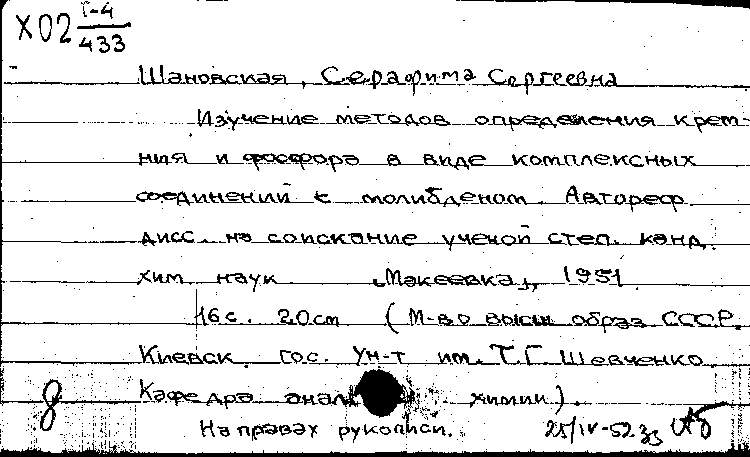 Х02 Г-4
433
Шановская, Серафима Сергеевна
Изучение методов определения крем-
ния и фосфора в виде комплексных
соединений с молибденом. Автореф.
дисс. на соискание ученой степ. канд.
хим. наук [Макеевка], 1951.
16 с. 20 см (М-во высш. образ. СССР.
Киевск. гос. ун-т им. Т.Г. Шевченко.
Кафедра анал химии).
8 На правах рукописи. 25/IV-52